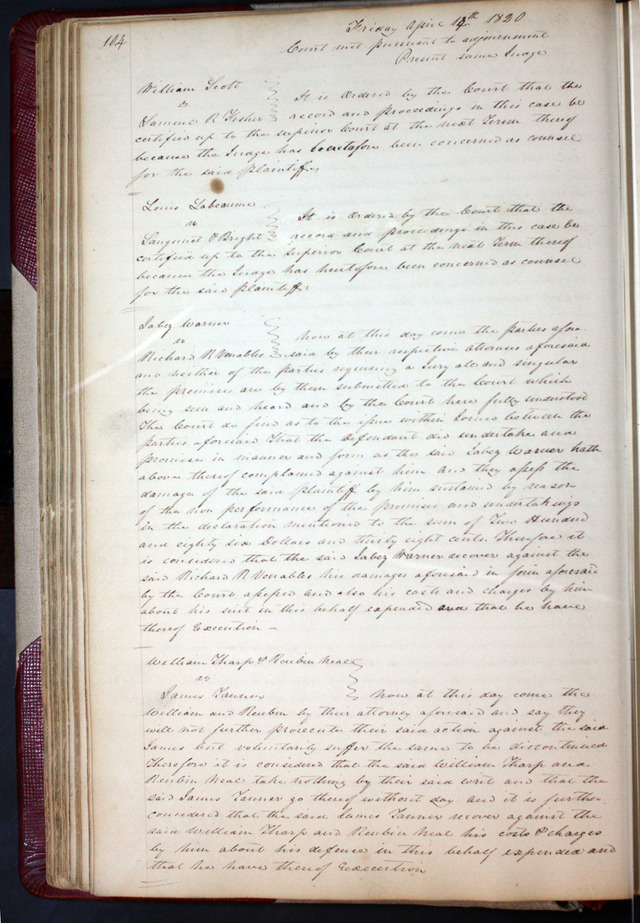 104
Friday April 14th 1820
Court met pursuant to adjournment
Present same Judge
William Scott
vs
Samuel R Fisher
It is Ordered by the Court that the
record and proceedings in this case be
certified up to the Superior Court at the next Term thereof
because the Judge has heretofore been concerned as counsel
for the said Plaintiff
Louis Labeaume
vs
Sanguinet & Bright
It is Ordered by the Court that the
record and proceedings in this case be
certified up to the Superior Court at the next Term thereof
because the Judge has heretofore been concerned as counsel
for the said Plaintiff
Jabez Warner
vs
Richard R Venables
Now at this day come the parties afore
said by their respective attornies aforesaid
and neither of the parties requiring a Jury all and singular
the premises are by them submitted to the Court which
being seen and heard and by the Court here fully understood
The Court do find as to the issue within Joined between the
parties aforesaid That the defendant did undertake and
promise in manner and form as the said Jabez Warner hath
above thereof complained against him and they assess the
damages of the said plaintiff by him sustained by reason
of the non performance of the promises and undertakings
in the declaration mentioned to the sum of Two Hundred
and eighty six Dollars and thirty eight cents. Therefore it
is considered that the said Jabez Warner recover against the
said Richard R Venables his damages aforesaid in form aforesaid
by the Court assessed and also his costs and charges by him
about his suit in this behalf expended and that he have
thereof Execution —
William Tharp & Reubin Neal
vs
James Tanner
Now at this day come the
William and Reubin by their attorney aforesaid and say they
will not further prosecute their said action against the said
James but voluntarily suffer the same to be discontinued
Therefore it is considered that the said William Tharp and
Reubin Neal take nothing by their said writ and that the
said James Tanner go thereof without day and it is further
considered that the said James Tanner recover against the
said William Tharp and Reubin Neal his costs & charges
by him about his defence in this behalf expended and
that he have thereof Execution